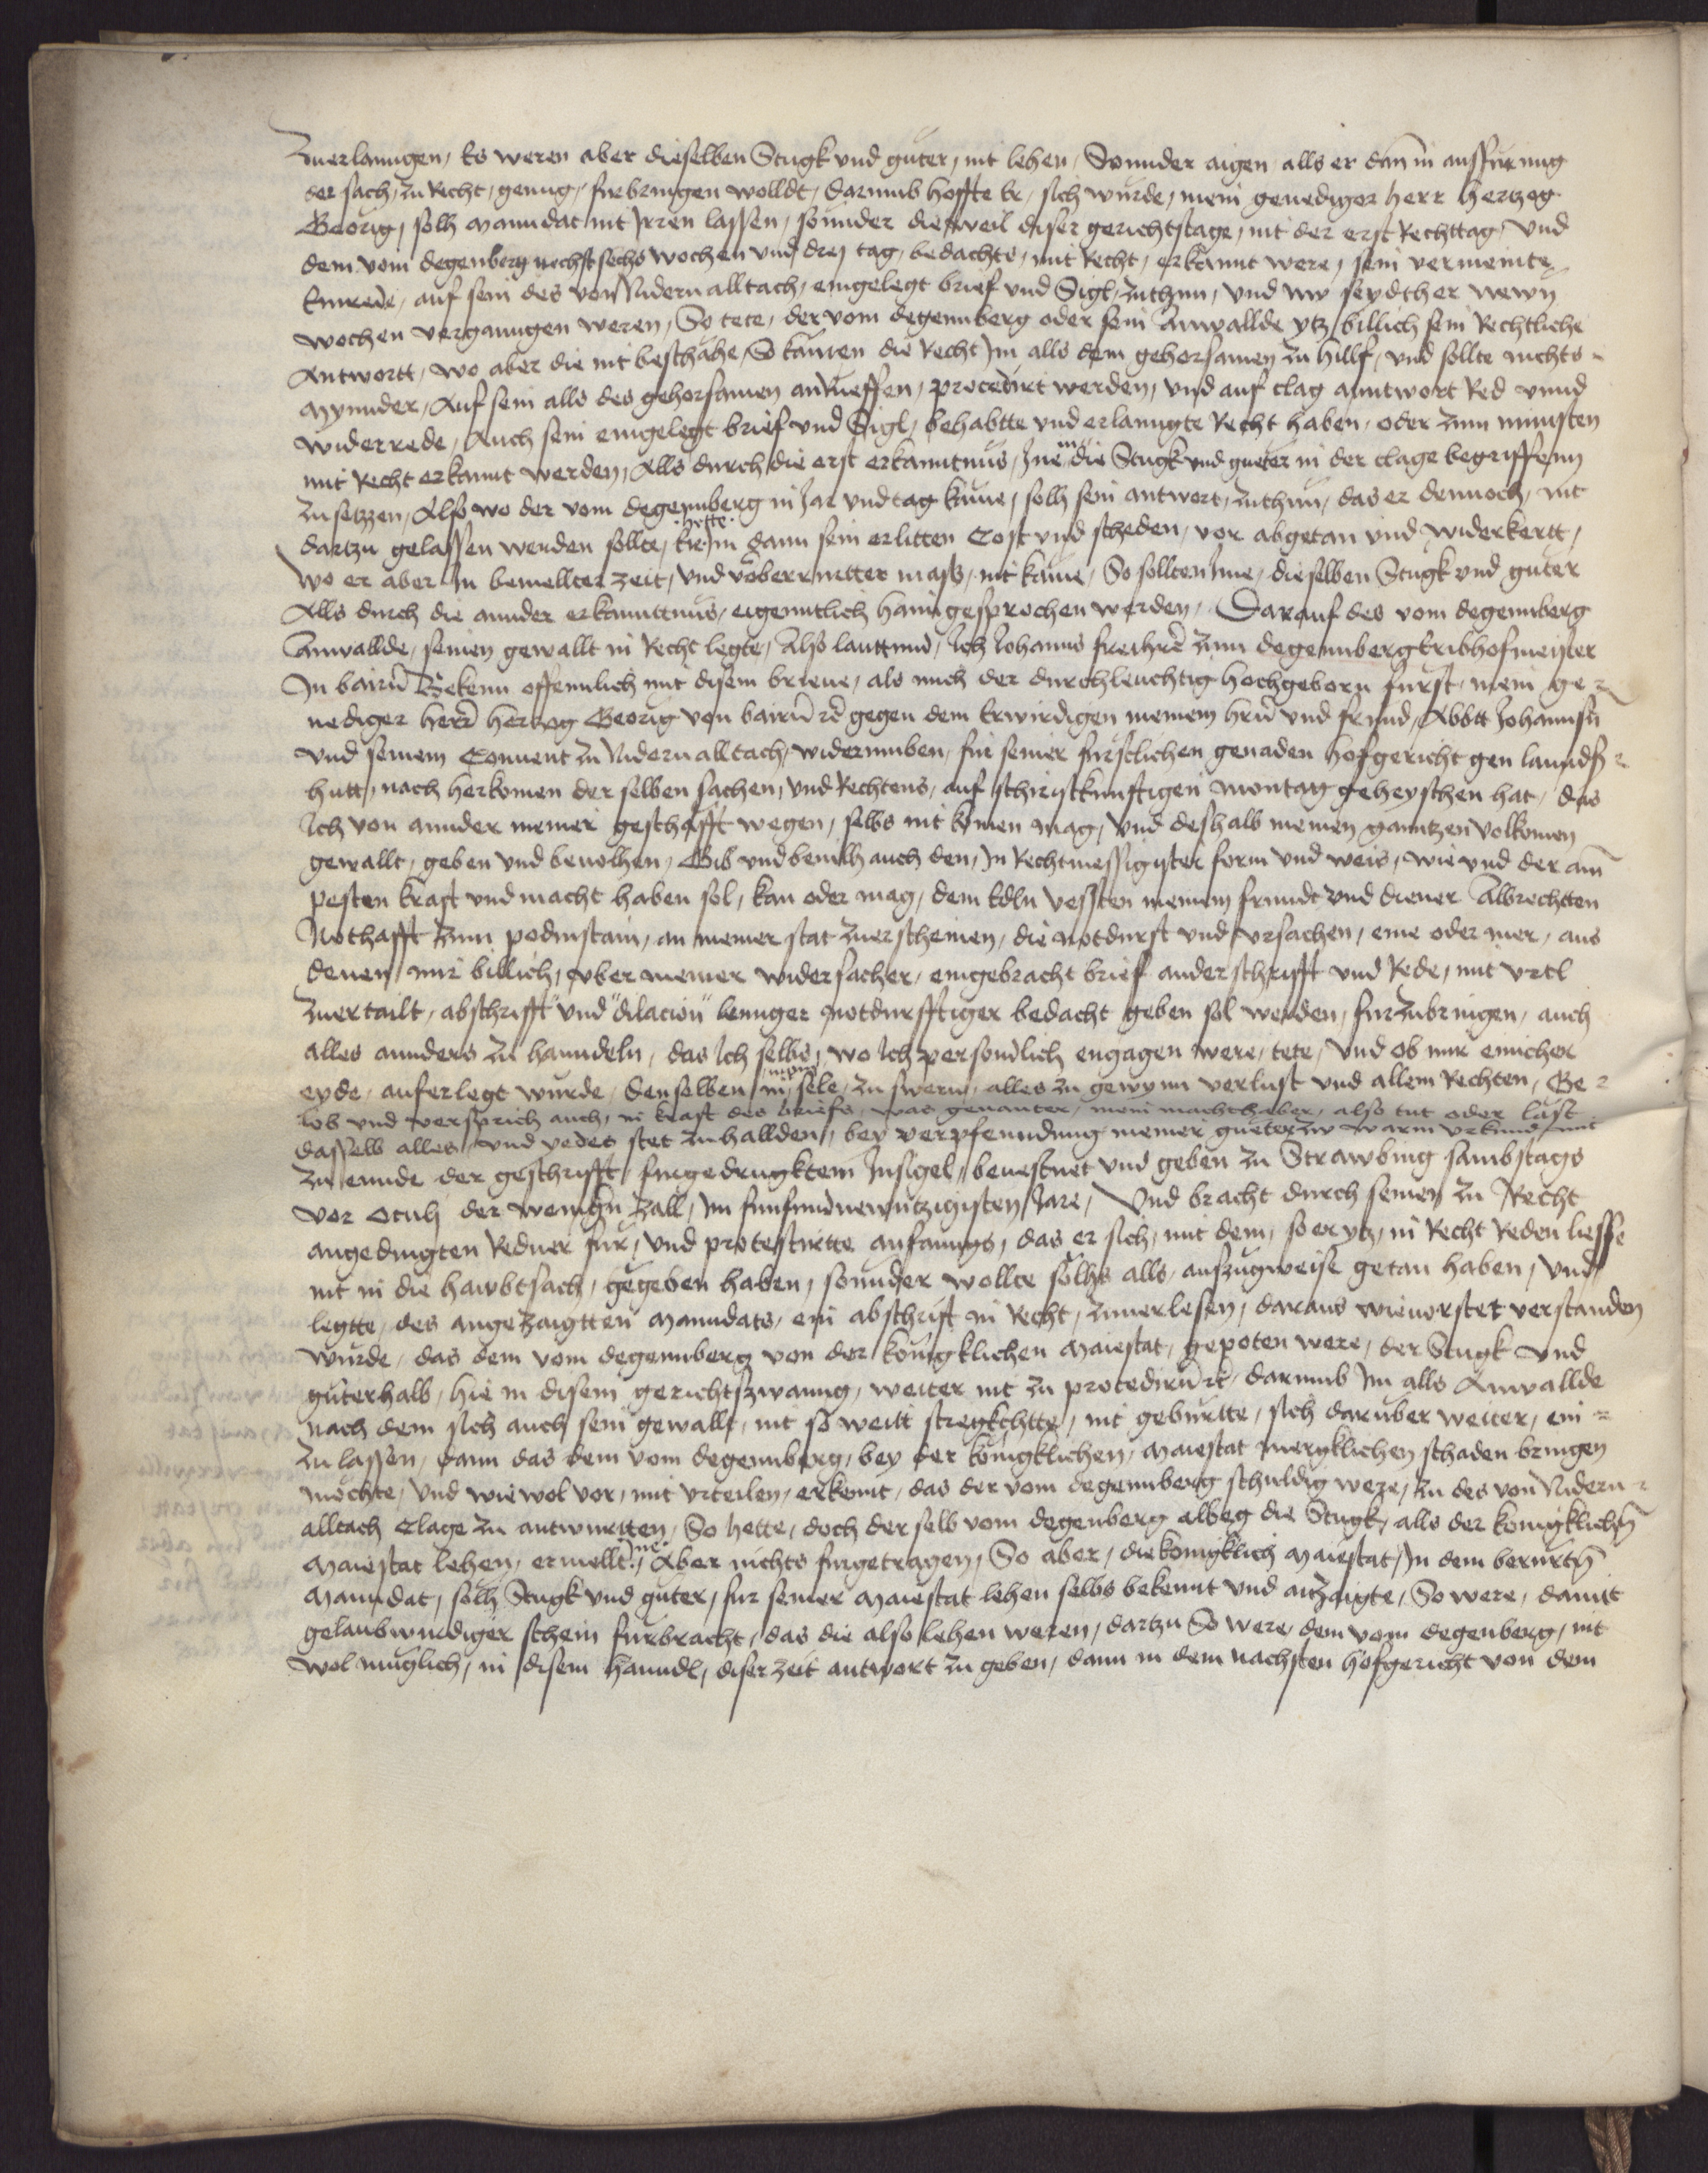 Zuerlanngen, Es weren aber dieselben Stugk vnd guter, nit lehen, Sonnder aigen alls er dan in ausfurung
der sach, zu Recht, genug, furbringen wolldt, darumb hoffte Er, sich wurde, mein genediger herr hertzog
Georig, solh manndat nit Irren lassen, sonnder dieweil diser gerichtstage, nit der erst Rechttag, vnd
dem vom degenberg nechst sechs wochen vnd drej tag, bedachts, mit Recht, erkannt were, sein vermeinte
Einrede, auf sein des von Nidernalltach, eingelegt brief vnd Sigl, zuthun, vnd nw seydther newn
wochen verganngen weren, So tete, der vom degennberg oder sein Anwallde ytz billich sein Rechtliche
Antwortt, wo aber die nit beschähe, So kämen die Recht Im alls dem gehorsamen zu hillf, vnd sollte nichts
mynnder, Auf sein alls des gehorsamen anRueffen, procedirt werden, vnd auf clag anntwort Red vnnd
widerrede, Auch sein eingelegt brief vnd Sigl, behabtte vnd erlanngte Recht haben, oder zum minsten
mit Recht erkannt werden, Alls durch die erst erkanntnus, Ine in die Stugk vnd gueter in der clage begriffenn
zu setzzen, Also wo der vom degennberg in Jar vnd tag käme, solh sein antwort, zuthun, das er dennoch, nit
dartzu gelassen werden sollte, Er hette Im dann sein erlitten Cost vnd scheden, vor abgetan vnd widerkertt,
wo er aber In bemellter zeit, vnd vöberrurtter mass, nit käme, So sollten Ime, dieselben Stugk vnd guter
Alls durch die annder erkannttnus, eigenntlich haimgesprochen werden, Darauf des vom degennberg
Anwallde, seinen gewallt in Recht legte, Also lauttund, Ich Johanns freihere zum degennberg Eribhofmeister
In bairn Bekenn offennlich mit disem brieue, als mich der durchleuchtig hochgeborn furst, mein ge-
nediger herr hertzog Georig von bairn etc gegen dem Erwirdigen meinem hern vnd frund, Abbtt Johannsn
vnd seinem Conuent zu Nidernalltach, widerumben, fur seiner furstlichen genaden hofgericht gen lanndß-
hutt, nach herkomen derselben sachen, vnd Rechtens, auf schiristkunftigen montag geheyschen hat, das
Ich von annder meiner geschäfft wegen, selbs nit komen mag, vnd deshalb meinen ganntzen volkomen
gewallt, geben vnd beuolhen, Gib vnd beuilh auch den, In Rechtmessigister form vnd weis, wie vnd der am
pesten kraft vnd macht haben sol, kan oder mag, dem Edln vessten meinem frundt vnd diener Albrechtten
Nothafft zum podenstain, an meiner stat zuerscheinen, die notdurft vnd vrsachen, eine oder mer, aus
denen mir billich, vber meiner widersacher, eingebracht brief ander schrifft vnd Rede, mit vrtl
zuertailt, abschrifft vnd dilacion lennger notdurfftiger bedacht geben sol werden, furzubringen, auch
alles annders zu hanndeln, das Ich selbs, wo Ich personlich engagen were, tete, vnd ob mir einicher
eyde, auferlegt wurde, denselben in mein sele, zu swern, alles zu gewynn verlust vnd allem Rechten, Ge-
lob vnd versprich auch, in kraft des briefs, was genanter, mein machthaber, also tut oder läst
dasselb alles, vnd yedes stet zuhallden, bey verpfenndung meiner gueter zw warm vrkund mit
zu ennde der geschrifft, furgedrugktem Insigel, beuestnet vnd geben zu Strawbing sambstags
vor oculj der wenigern zall, Im funfundnewntzigisten Jare, Vnd bracht durch seinen zu Recht
angedingten Redner fur, vnd protestirtte anfanngs, das er sich, mit dem, so er ytz, in Recht Reden liesse
nit in die hawbtsach, gegeben haben, sonnder wollte solhs alls auszugweise getan haben, Vnd
legtte, des angezaigtten manndats, ein abschrift in Recht, zuuerlesen, daraus wieuorstet verstanden
wurde, das dem vom degennberg von der konigklichen maiestat, gepoten were, der Stugk vnd
guterhalb, hie in disem gerichtszwanng, weiter nit zu procedirn etc, darumb Im alls Anwallde
nach dem sich auch sein gewallt, nit so weitt stregkchtte, nit geburtte, sich daruber weiter, ein-
zulassen, dann das dem vom degennberg, bey der konigklichen, maiestat mergklichen schaden bringen
möchte, vnd wiewol vor, mit vrteilen, erkennt, das der vom degennberg schuldig were, zu des von Nidern-
alltach Clage zu antwurtten, So hette, doch derselb vom degenberg albeg die Stugk, alls der konigklichen
maiestat lehen, ermellt, Ine, Aber nichts furgetragen, So aber, die konigklich maiestat, In dem berurtn
manndat, solh Stugk vnd guter, fur seiner maiestat lehen selbs bekennt vnd antzaigte, So were, damit
gelaubwirdiger schein furbracht, das die also lehen weren, dartzu So were dem vom degenberg, nit
wol muglich, in disem hanndl, diser zeit antwort zu geben, dann in dem nachsten hofgericht von dem